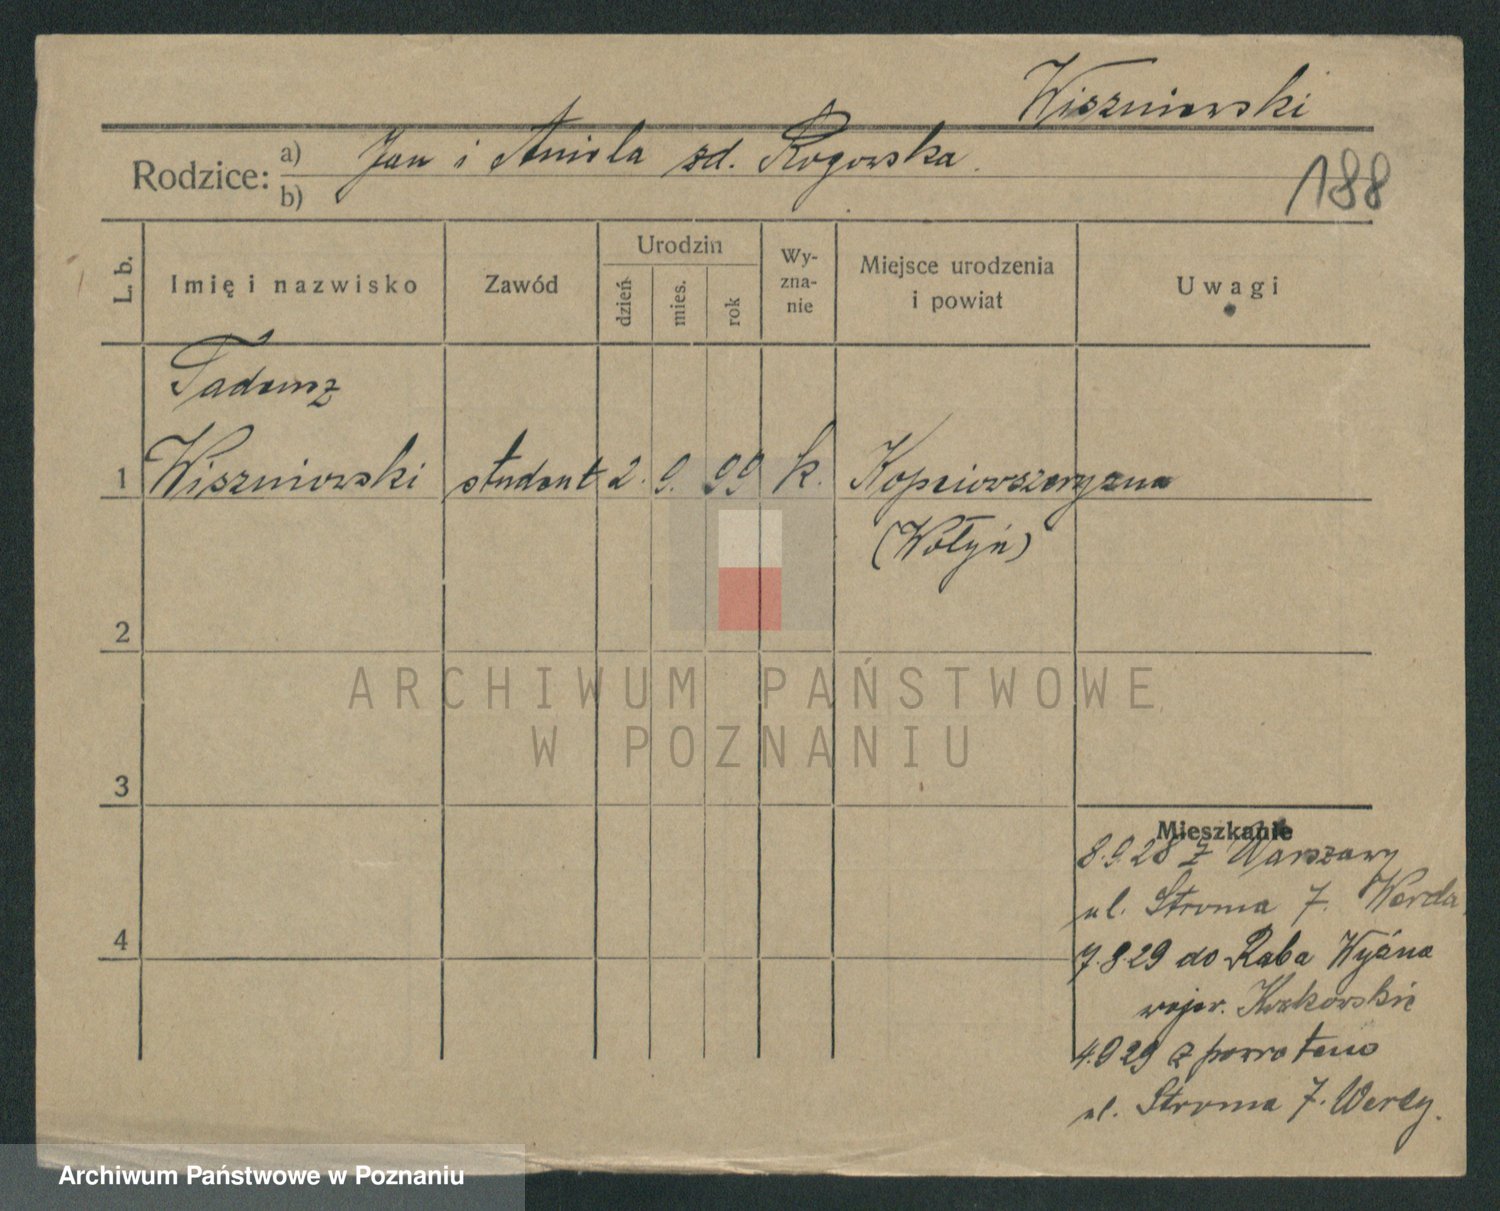 Wiszniewski
188
Rodzice: a) Jan i Aniela zd. Rogowska.
b)
L. b.
Imię i nazwisko
Zawód
Urodzin
dzień
mies.
rok
Wy-
zna-
nie
Miejsce urodzenia
i powiat
Uwagi
Tadeusz
1 Wiszniewski student 2. 9. 99 k.
(Wołyń)
2
3
4
Mieszkanie
8.9.28 z Warszawy
ul. Stroma 7. Werda
7.8.29 do Raba Wyżna
wojew. Krakowskie
4.9 29 z powrotem
ul. Stroma 7.
ARCHIWUM PAŃSTWOWE
W POZNANIU
Archiwum Państwowe w Poznaniu